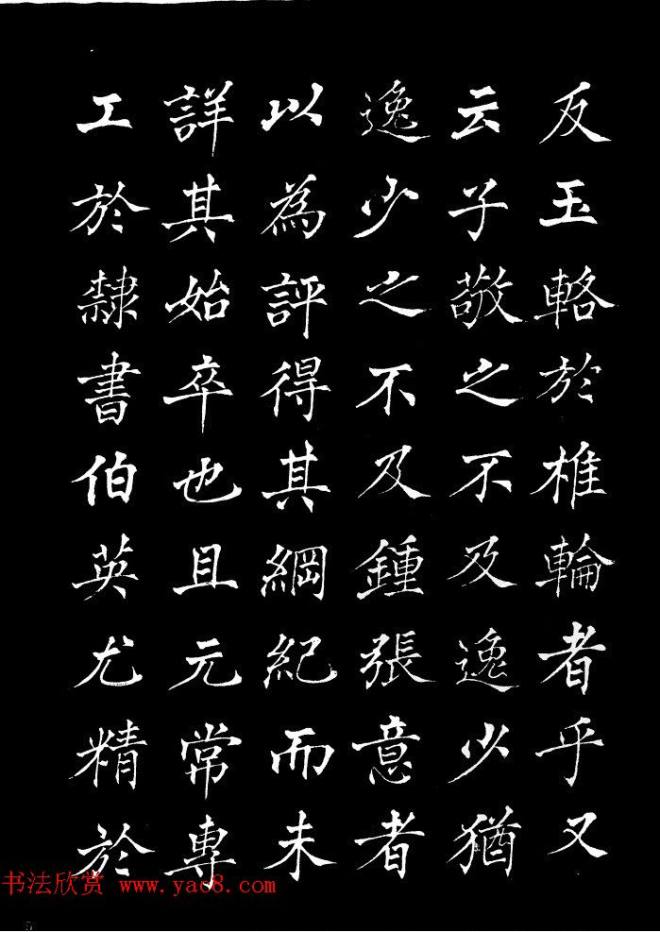 反玉輅於椎輪者乎又
云子敬之不及逸少猶
逸少之不及鍾張意者
以為評得其綱紀而未
詳其始卒也且元常專
工於隸書伯英尤精於
书法欣赏 www.yac8.com